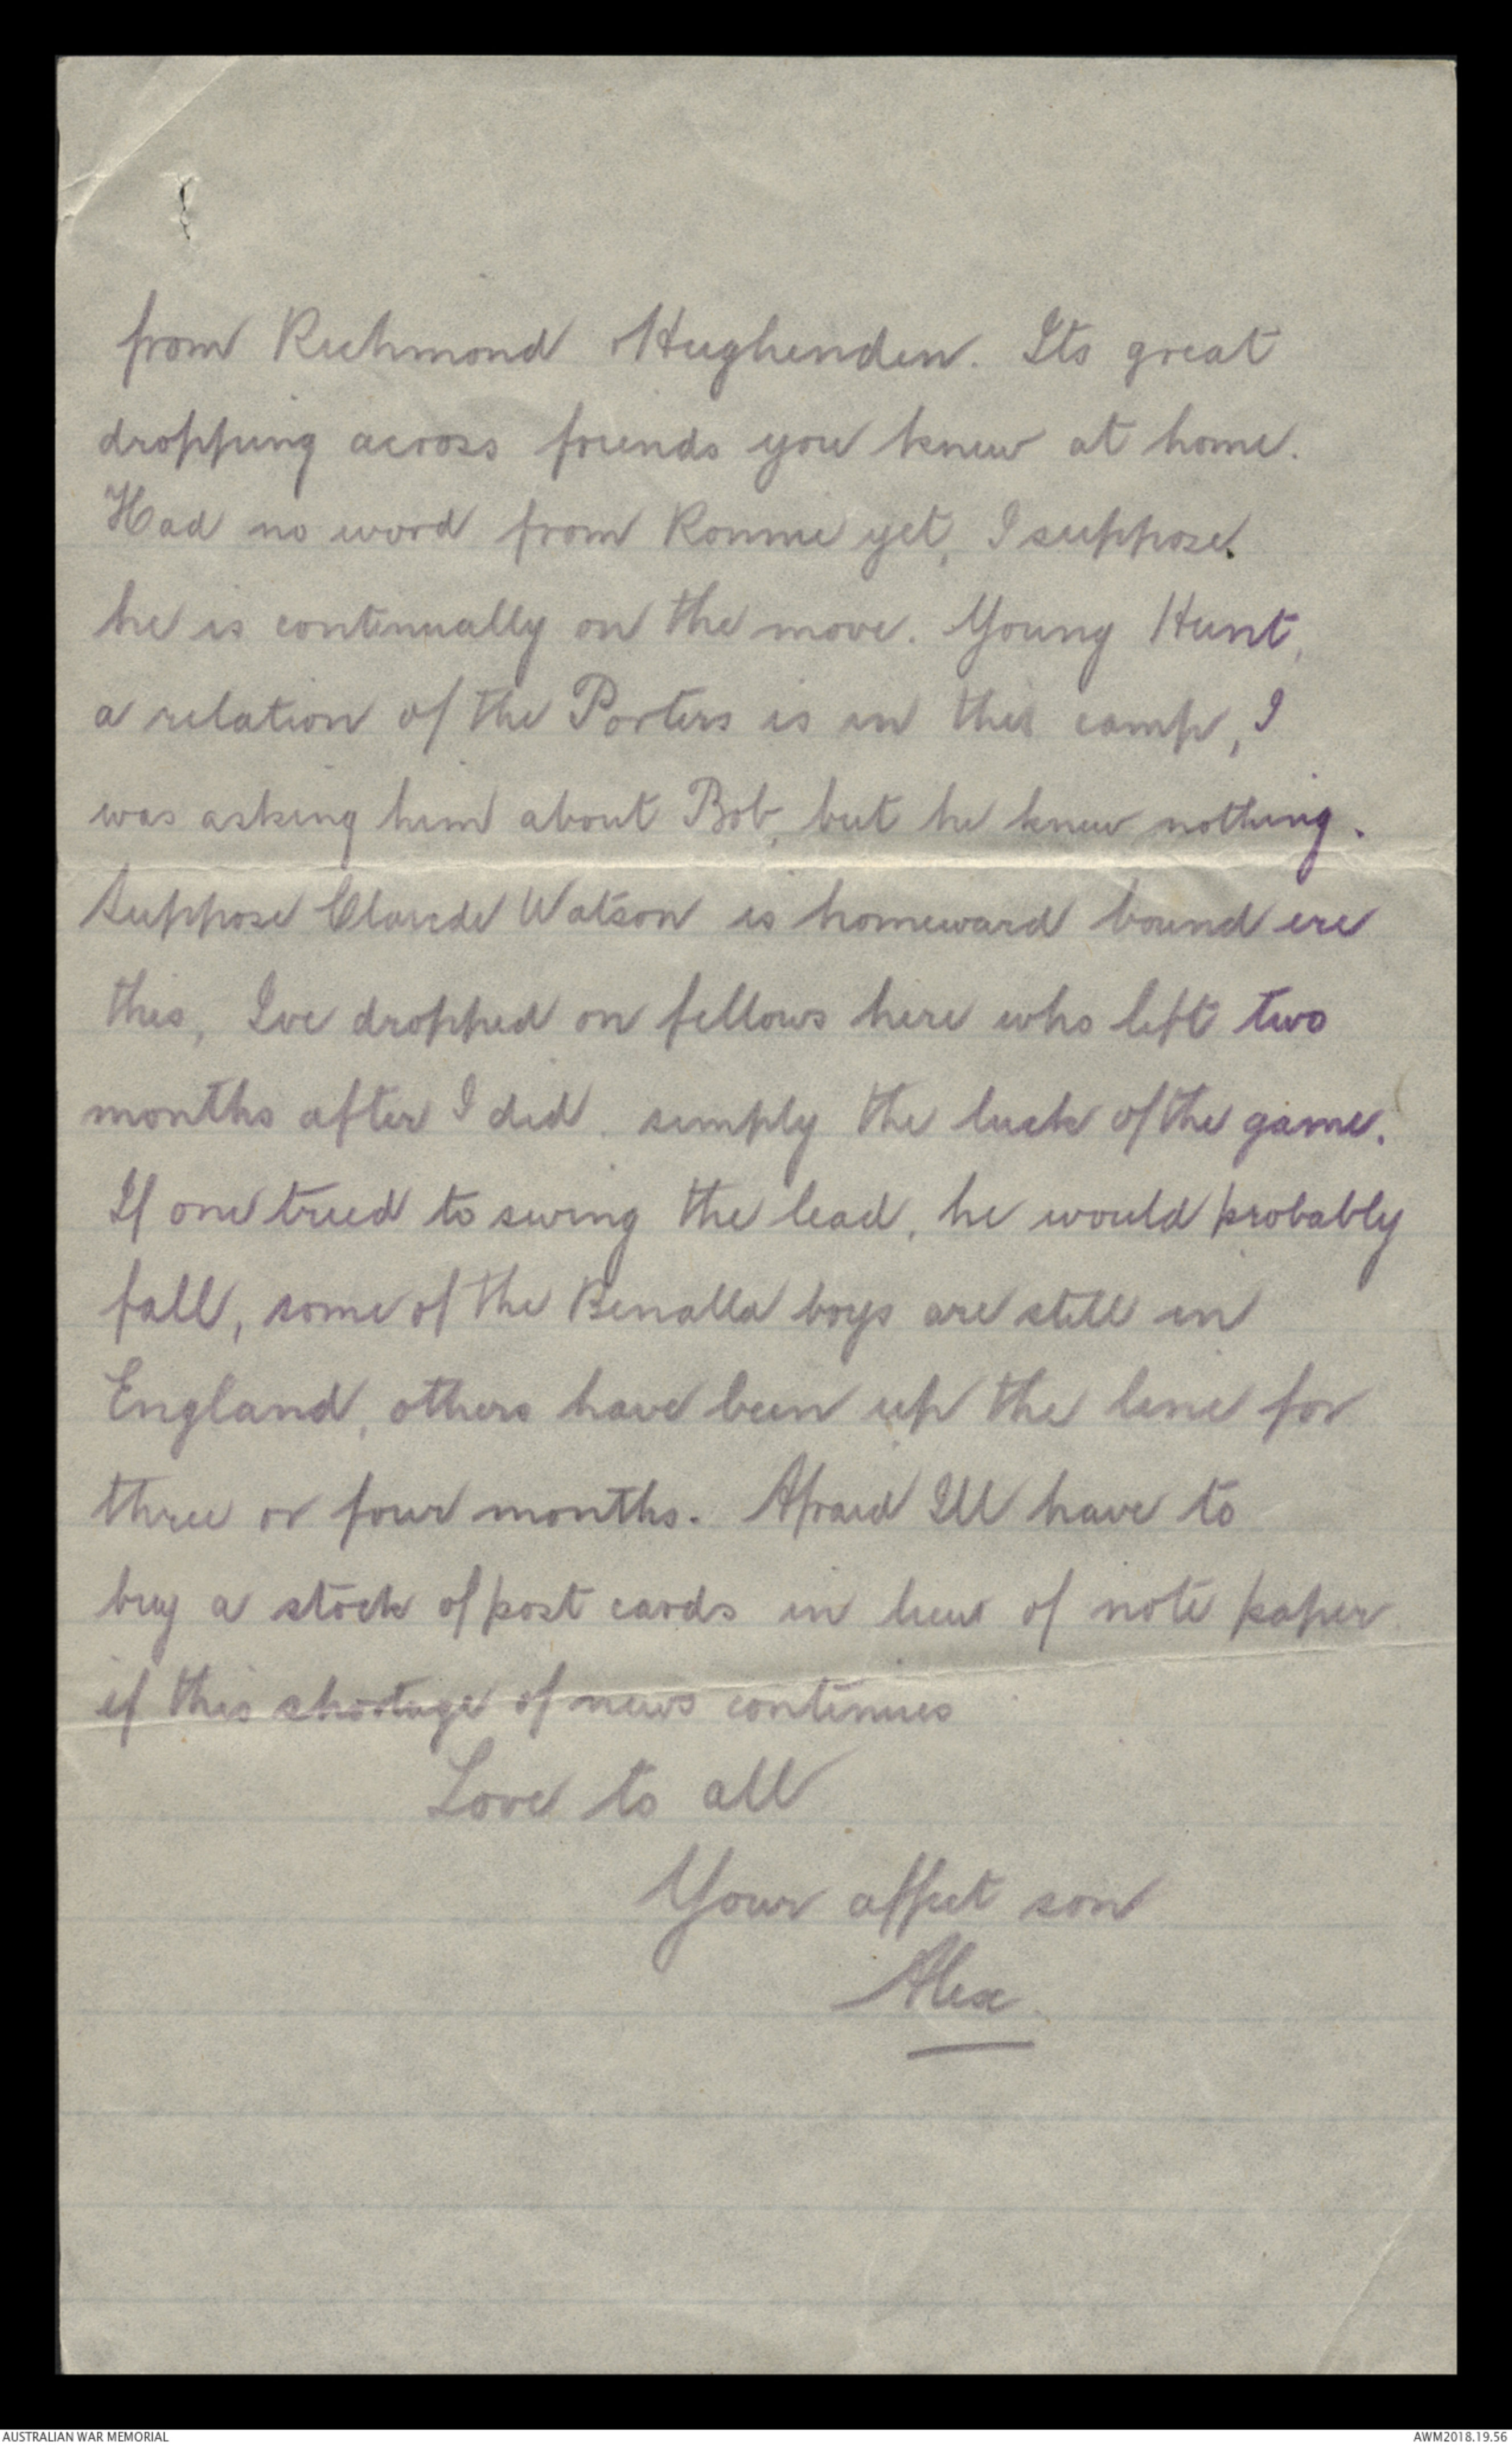 from Richmond Hughenden. Its great
dropping across friends you knew at home.
Had no word from Ronnie yet, I suppose
he is continually on the move. Young Hunt,
a relation of the Porters is in this camp, I
was asking him about Bob, but he knew nothing.
Suppose Claude Watson is homeward bound ere
this, Ive dropped on fellows here who left two
months after I did. simply the luck of the game.
If one tried to swing the lead, he would probably
fall, some of the Benalla boys are still in
England, others have been up the line for
three or four months. Afraid Ill have to
buy a stock of post cards in lieu of note paper
if this shortage of news continues
Love to all
Your affect son
Alex.
AUSTRALIAN WAR MEMORIAL
AWM2018.19.56